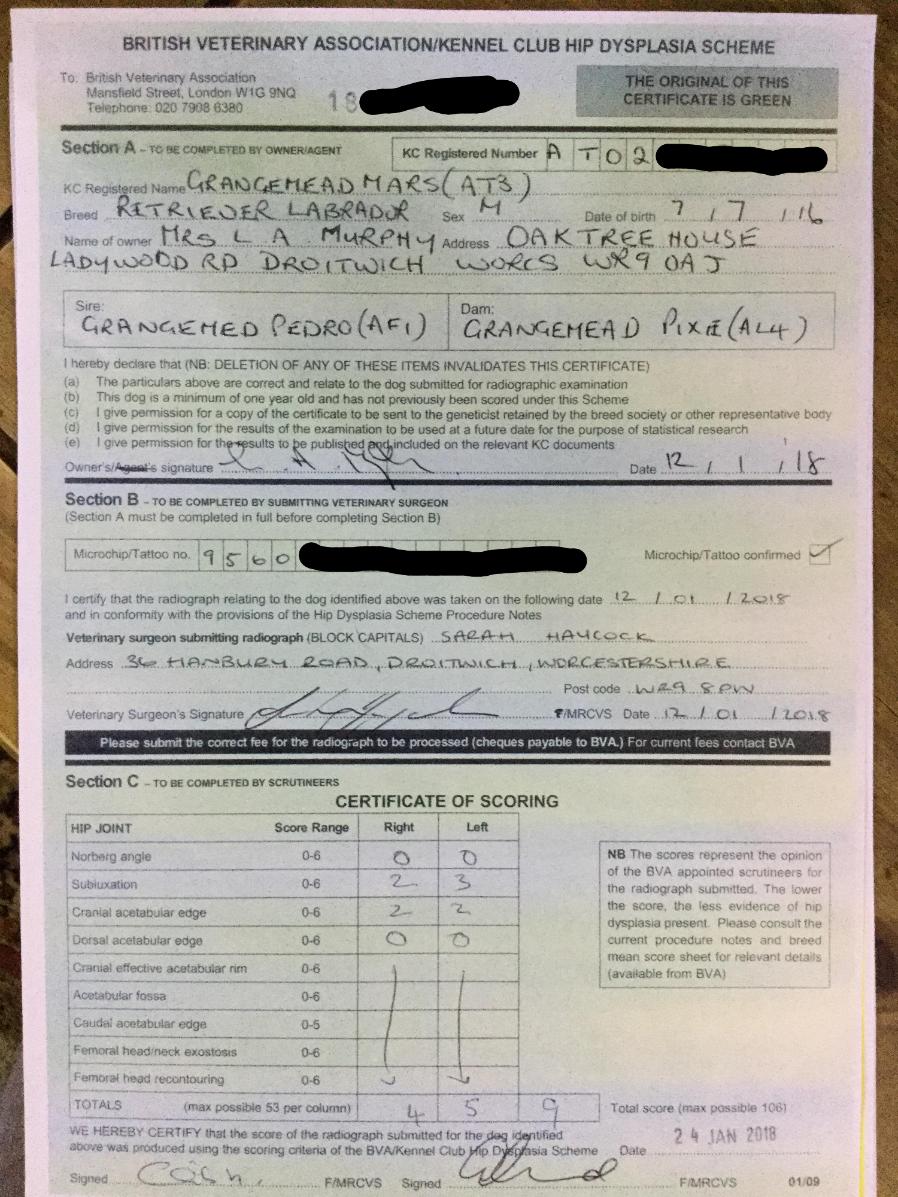 BRITISH VETERINARY ASSOCIATION/KENNEL CLUB HIP DYSPLASIA SCHEME
To: British Veterinary Association
Mansfield Street, London W1G 9NQ
Telephone: 020 7908 6380
18
THE ORIGINAL OF THIS
CERTIFICATE IS GREEN
Section A – TO BE COMPLETED BY OWNER/AGENT
KC Registered Number A T 0 2
KC Registered Name GRANGEMEAD MARS (AT3)
Breed RETRIEVER LABRADOR Sex M Date of birth 7 / 7 / 16
Name of owner MRS L A MURPHY Address OAK TREE HOUSE
LADYWOOD RD DROITWICH WORCS WR9 0AJ
Sire:
GRANGEMED PEDRO (AF1)
Dam:
GRANGEMEAD PIXIE (AL4)
I hereby declare that (NB: DELETION OF ANY OF THESE ITEMS INVALIDATES THIS CERTIFICATE)
(a) The particulars above are correct and relate to the dog submitted for radiographic examination
(b) This dog is a minimum of one year old and has not previously been scored under this Scheme
(c) I give permission for a copy of the certificate to be sent to the geneticist retained by the breed society or other representative body
(d) I give permission for the results of the examination to be used at a future date for the purpose of statistical research
(e) I give permission for the results to be published and included on the relevant KC documents
Owner's/Agent's signature Date 12 / 1 / 18
Section B – TO BE COMPLETED BY SUBMITTING VETERINARY SURGEON
(Section A must be completed in full before completing Section B)
Microchip/Tattoo no. 9 5 6 0
Microchip/Tattoo confirmed ✓
I certify that the radiograph relating to the dog identified above was taken on the following date 12 / 01 / 2018
and in conformity with the provisions of the Hip Dysplasia Scheme Procedure Notes
Veterinary surgeon submitting radiograph (BLOCK CAPITALS) SARAH HAYCOCK
Address 36 HANBURY ROAD, DROITWICH, WORCESTERSHIRE
Post code WR9 8PW
Veterinary Surgeon's Signature F/MRCVS Date 12 / 01 / 2018
Please submit the correct fee for the radiograph to be processed (cheques payable to BVA.) For current fees contact BVA
Section C – TO BE COMPLETED BY SCRUTINEERS
CERTIFICATE OF SCORING
HIP JOINT Score Range Right Left
Norberg angle 0-6 0 0
Subluxation 0-6 2 3
Cranial acetabular edge 0-6 2 2
Dorsal acetabular edge 0-6 0 0
Cranial effective acetabular rim 0-6
Acetabular fossa 0-6
Caudal acetabular edge 0-5
Femoral head/neck exostosis 0-6
Femoral head recontouring 0-6
TOTALS (max possible 53 per column) 4 5 9 Total score (max possible 106)
NB The scores represent the opinion
of the BVA appointed scrutineers for
the radiograph submitted. The lower
the score, the less evidence of hip
dysplasia present. Please consult the
current procedure notes and breed
mean score sheet for relevant details
(available from BVA)
WE HEREBY CERTIFY that the score of the radiograph submitted for the dog identified
above was produced using the scoring criteria of the BVA/Kennel Club Hip Dysplasia Scheme Date 24 JAN 2018
Signed F/MRCVS Signed F/MRCVS 01/09